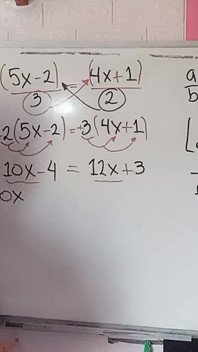 (5x-2)/3 = (4x+1)/2
2(5x-2)=3(4x+1)
10x-4 = 12x+3
0x
a
b